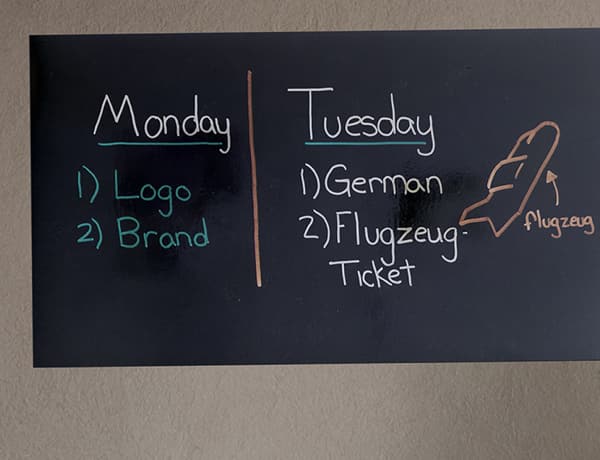 Monday
1) Logo
2) Brand
Tuesday
1) German
2) Flugzeug-
Ticket
flugzeug